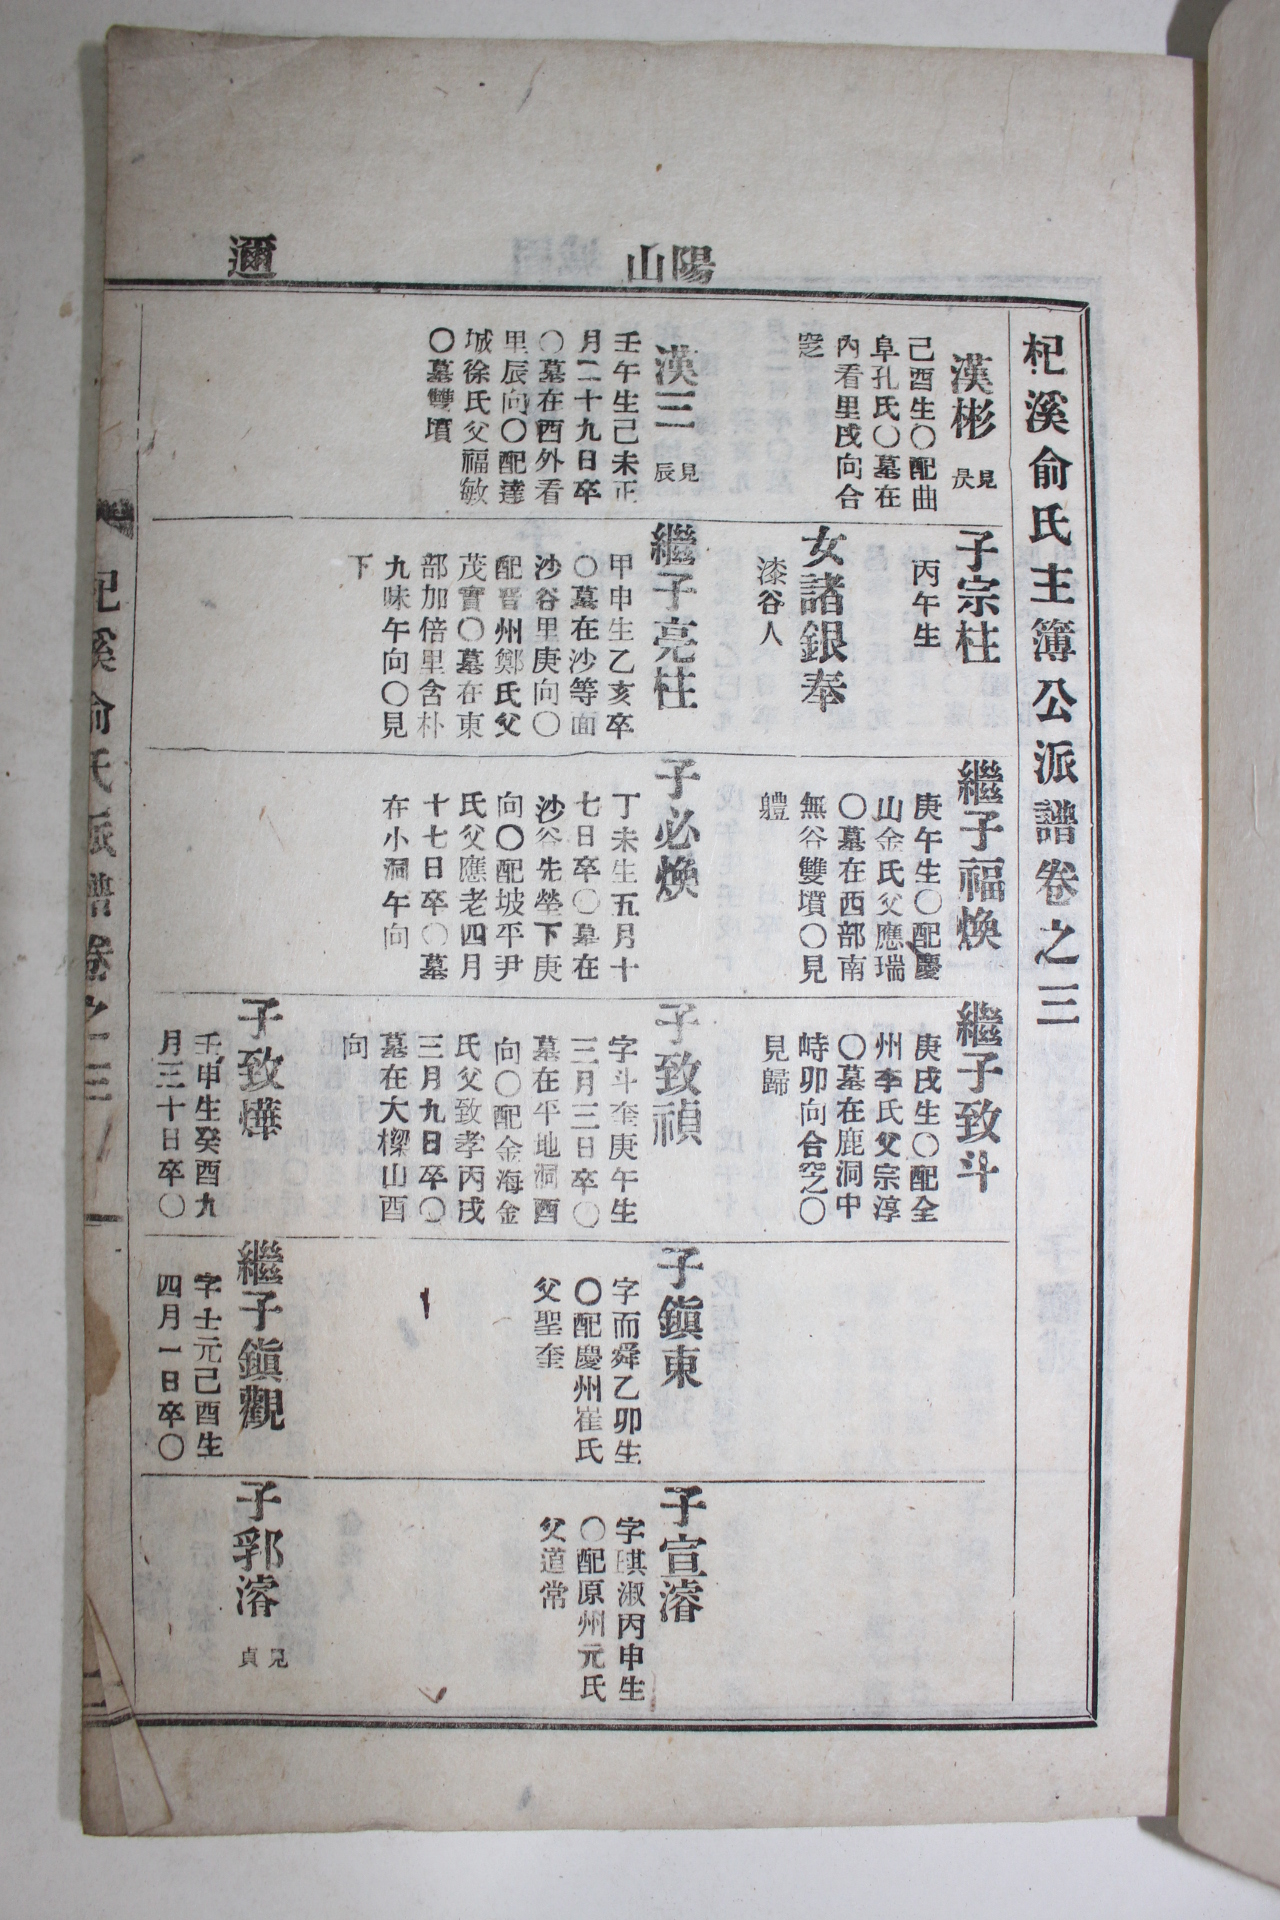 邇
山陽
杞溪俞氏主簿公派譜卷之三
漢彬
見
昃
己酉生〇配曲
阜孔氏〇墓在
內看里戌向合
窆
漢三
見
辰
壬午生己未正
月二十九日卒
〇墓在酉外看
里辰向〇配達
城徐氏父福敏
〇墓雙墳
子宗柱
丙午生
女諸銀奉
漆谷人
繼子亮柱
甲申生乙亥卒
〇墓在沙等面
沙谷里庚向〇
配晋州鄭氏父
茂實〇墓在東
部加倍里含朴
九味午向〇見
下
繼子福煥
庚午生〇配慶
山金氏父應瑞
〇墓在西部南
無谷雙墳〇見
軆
子必煥
丁未生五月十
七日卒〇墓在
沙谷先塋下庚
向〇配坡平尹
氏父應老四月
十七日卒〇墓
在小洞午向
繼子致斗
庚戌生〇配全
州李氏父宗淳
〇墓在鹿洞中
峙卯向合窆〇
見歸
子致禎
字斗奎庚午生
三月三日卒〇
墓在平地洞酉
向〇配金海金
氏父致孝丙戌
三月九日卒〇
墓在大樑山酉
向
子致燁
壬申生癸酉九
月三十日卒〇
子鎭東
字而舜乙卯生
〇配慶州崔氏
父聖奎
繼子鎭觀
字士元己酉生
四月一日卒〇
子宣濬
字琪淑丙申生
〇配原州元氏
父道常
子郛濬
見
貞
杞溪俞氏派譜卷之三
一